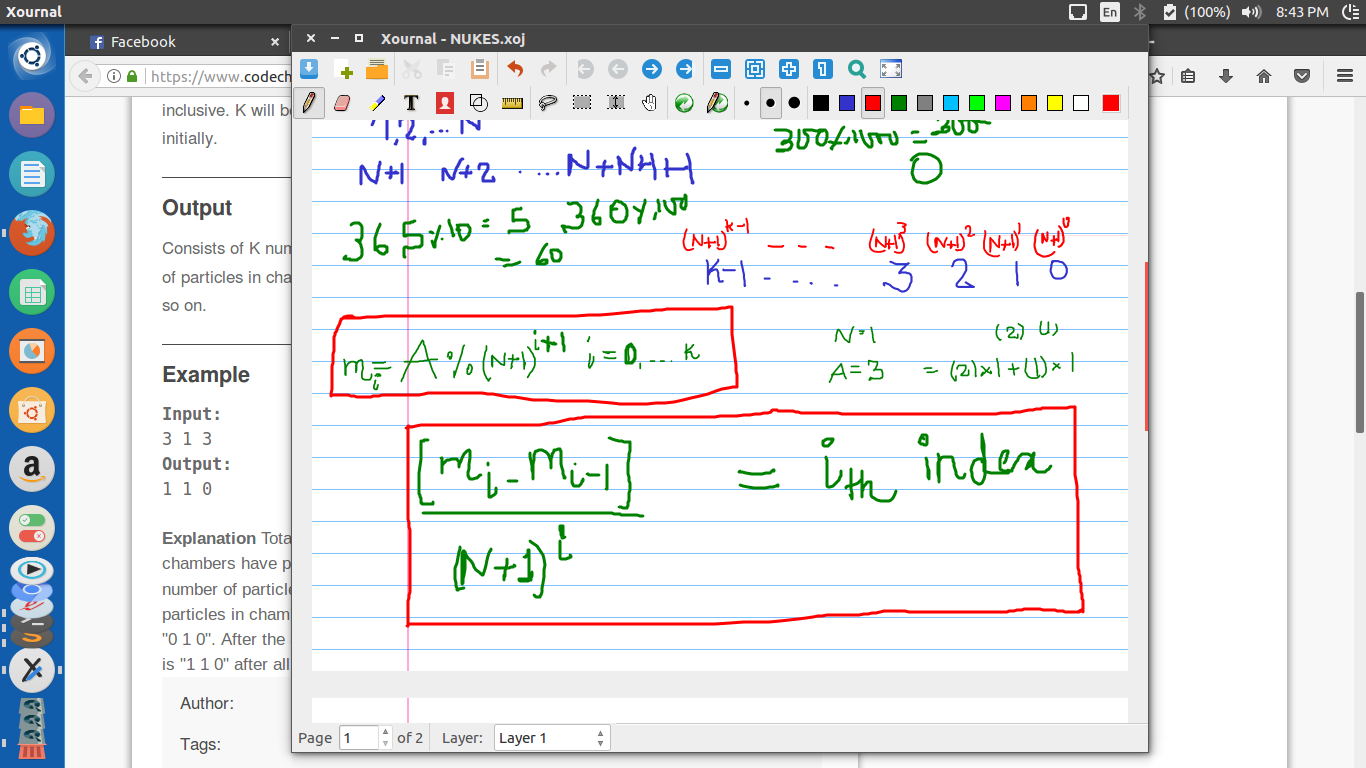 Xournal
En
(100%)
8:43 PM
Facebook
https://www.codech
Xournal - NUKES.xoj
inclusive. K will be
initially.
Output
Consists of K num
of particles in cha
so on.
Example
Input:
3 1 3
Output:
1 1 0
Explanation Tota
chambers have p
number of particle
particles in cham
"0 1 0". After the
is "1 1 0" after all
Author:
Tags:
1,2,... N
N+1 N+2 ....
300%1000 = 300
0
365%10 = 5 360%100
= 60
(N+1)^k-1 - - - (N+1)^3 (N+1)^2 (N+1)^1 (N+1)^0
k-1 - .... 3 2 1 0
m_i = A % (N+1)^i+1 i = 0, ... k
N=1 (2) (1)
A=3 = (2)×1+(1)×1
[m_i - m_i-1] = i_th index
(N+1)^i
Page 1 of 2 Layer: Layer 1